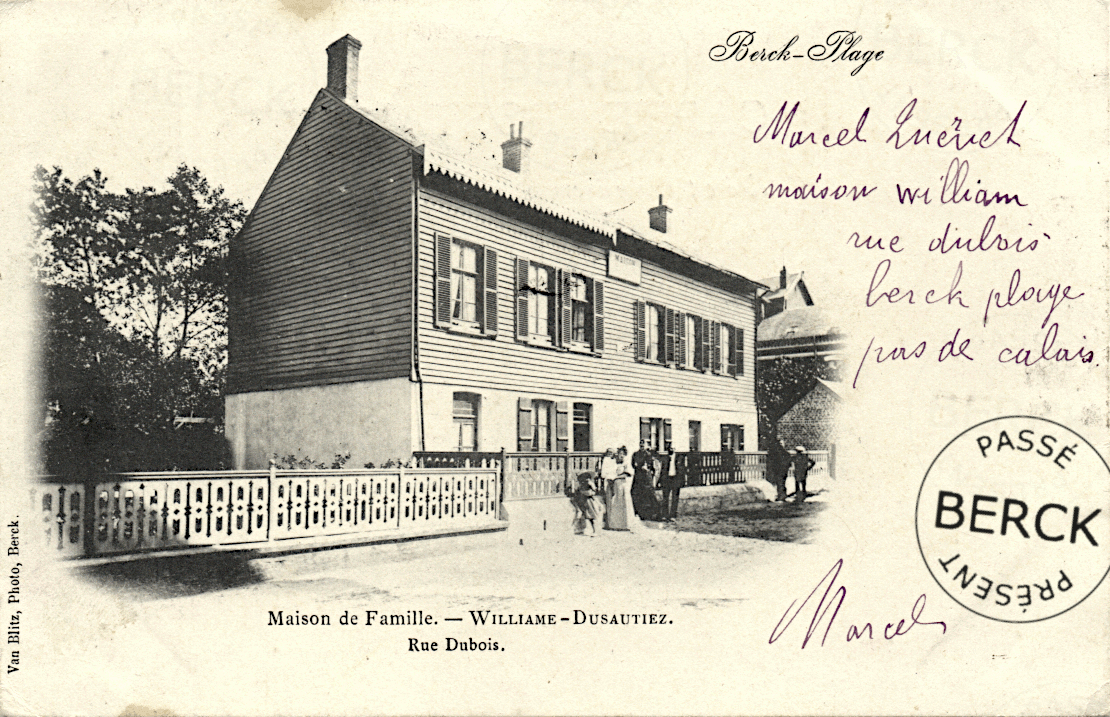 Berck-Plage
Marcel
maison william
rue dubois
berck plage
pas de calais
MAISON
PASSÉ
BERCK
PRÉSENT
Marcel
Maison de Famille. — WILLIAME-DUSAUTIEZ.
Rue Dubois.
Van Blitz, Photo, Berck.